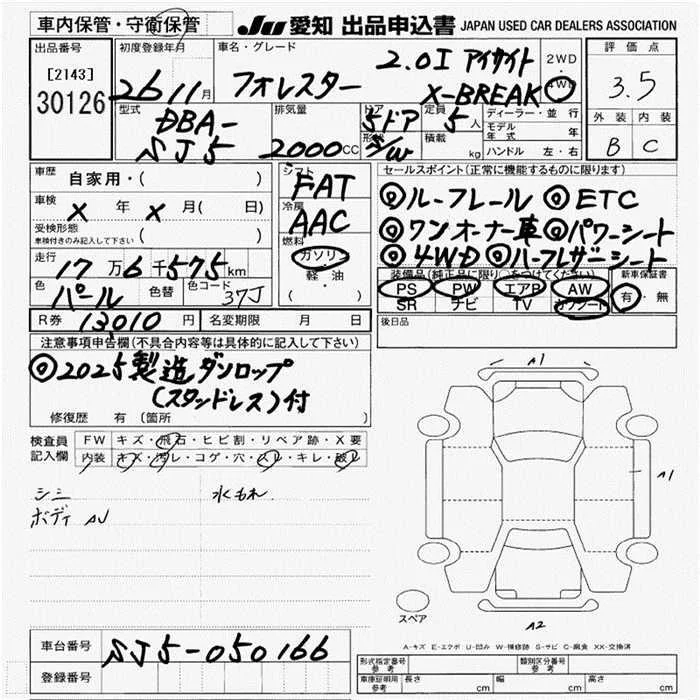 車内保管・守衛保管
JU 愛知 出品申込書 JAPAN USED CAR DEALERS ASSOCIATION
出品番号
[2143]
30126
初度登録年月
26 11月
車名・グレード
フォレスター 2.0I アイサイト
X-BREAK
2WD
・
4WD
評価点
3.5
外装 内装
B C
型式
DBA-
SJ5
排気量
2000cc
ドア
形状
5ドア
S/W
定員
5人
積載
kg
ディーラー・並行
モデル年式 年
ハンドル 左・右
車歴
自家用・( )
車検
X 年 X 月( 日)
受検形態
車検付きのみ記入して下さい ( )
走行
17万6千575km
色
パール
色替
色コード
37J
R券 13,010 円
名変期限 月 日
シフト
FAT
冷房
AAC
燃料
ガソリン
・
軽・油
( )
セールスポイント(正常に機能するものに限ります)
◎ルーフレール ◎ETC
◎ワンオーナー車 ◎パワーシート
◎4WD ◎ハーフレザーシート
装備品(純正品に限り○をつけてください)
PS PW エアB AW
SR ナビ TV カワシート
新車保証書
有・無
後日品
注意事項申告欄(不具合内容等は具体的に記入して下さい)
◎2025製造ダンロップ
(スタッドレス)付
修復歴 有 〔箇所 〕
検査員
記入欄
FW キズ・飛石・ヒビ割・リペア跡・X要
内装 キズ・汚レ・コゲ・穴・スレ・キレ・破レ
シミ 水もれ
ボディ AU
A1
A1
スペア
A2
A-キズ E-エクボ U-凹み W-補修跡 S-サビ C-腐食 XX-交換済
車台番号 SJ5-050166
登録番号
形式指定番号
参考
類別区分番号
参考
車庫証明用
参考
長さ cm 幅 cm 高さ cm